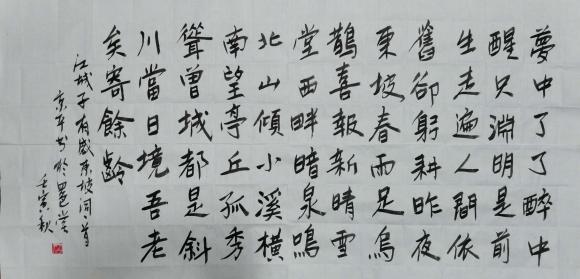 夢中了了醉中
醒只淵明是前
生走遍人間依
舊卻躬耕昨夜
東坡春雨足烏
鵲喜報新晴雪
堂西畔暗泉鳴
北山傾小溪橫
南望亭丘孤秀
聳曾城都是斜
川當日境吾老
矣寄餘齡
江城子有感東坡词一首
书於
壬寅秋